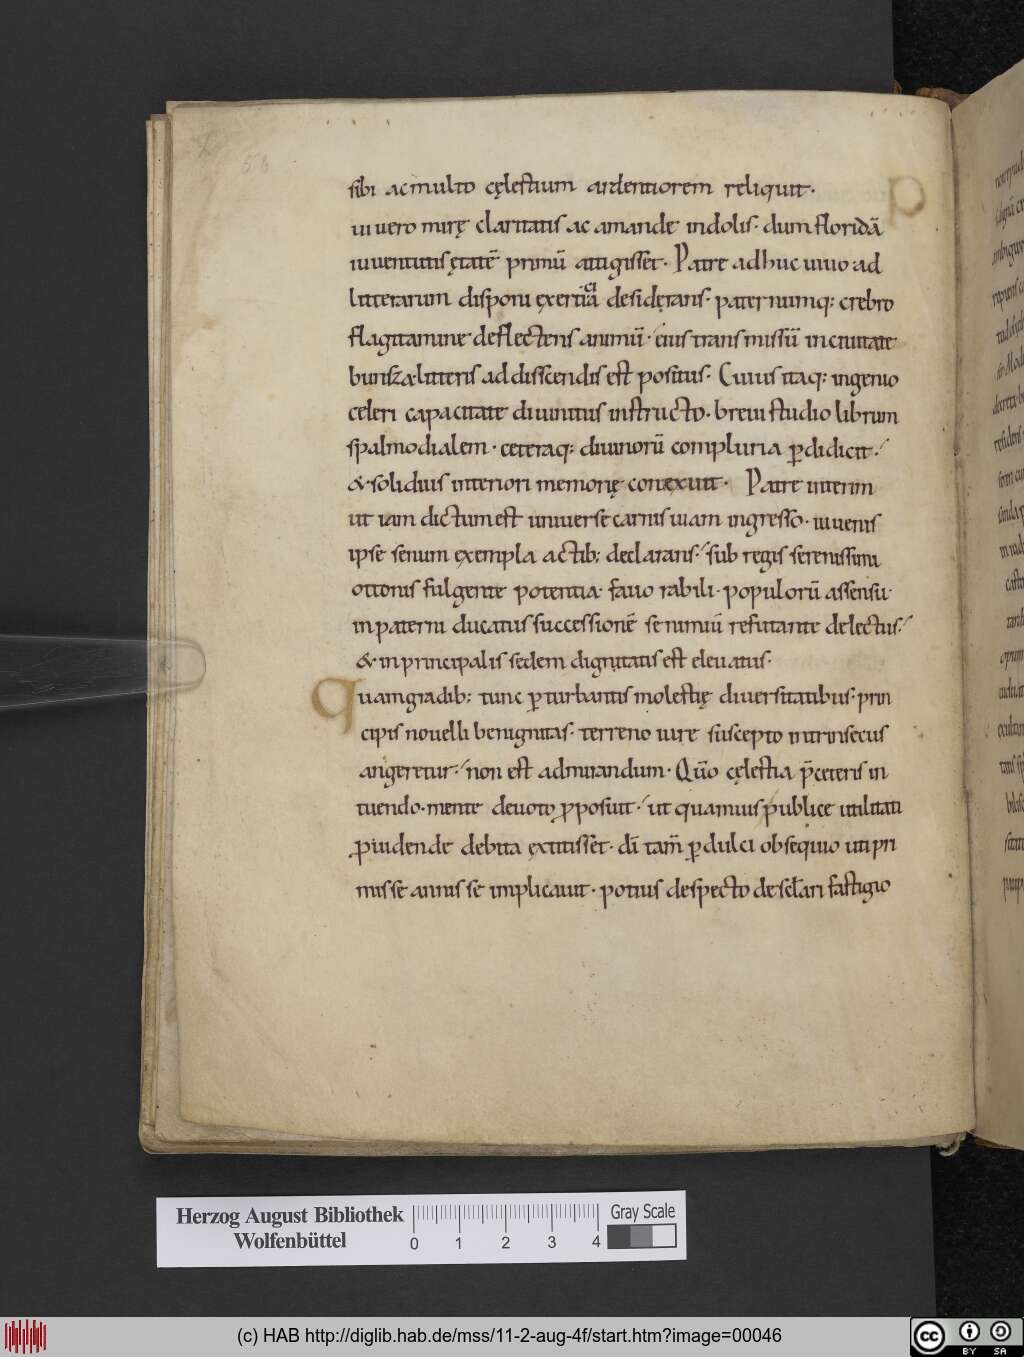 sibi ac multo cęlestium ardentiorem reliquit. P
ui uero mirę claritatis ac amande indolis. dum floridā
iuuentutis ętatē primū attigisset. Patre adhuc uiuo ad
litterarum disponi exertia desiderans. paternumq: crebro
flagitamine deflectens animū. eius transmissū inciuitate
buriza litteris addisscendis est positus. Cuius itaq: ingenio
celeri capacitate diuinitus instructo. breui studio librum
spalmodialem. ceteraq: diuinorū compluria p̄didicit.
& solidius interiori memorię conexuit. Patre interim
ut iam dictum est uniuerse carnis uiam ingresso. iuuenis
ipse senum exempla actib; declarans. sub regis serenissimi
ottonis fulgente potentia. fauorabili populorū assensu
in paterni ducatus successionē se nimiū refutante delectus.
& in principalis sedem dignitatis est eleuatus.
Quamgradib; tunc p̄turbantis molestię diuersitatibus. prin
cipis nouelli benignitas. terreno iure suscepto intrinsecus
angeretur. non est admirandum. Qūo cęlestia p̄ceteris in
tuendo. mente deuoto p̄posuit. ut quamuis publice utilitati
p̄uidende debita extitisset. dī tam̄ p̄dulci obsequio uti pri
mis se annis se implicauit. potius despecto desclari fastigio
Herzog August Bibliothek
Wolfenbüttel
0 1 2 3 4
Gray Scale
(c) HAB http://diglib.hab.de/mss/11-2-aug-4f/start.htm?image=00046
cc BY SA